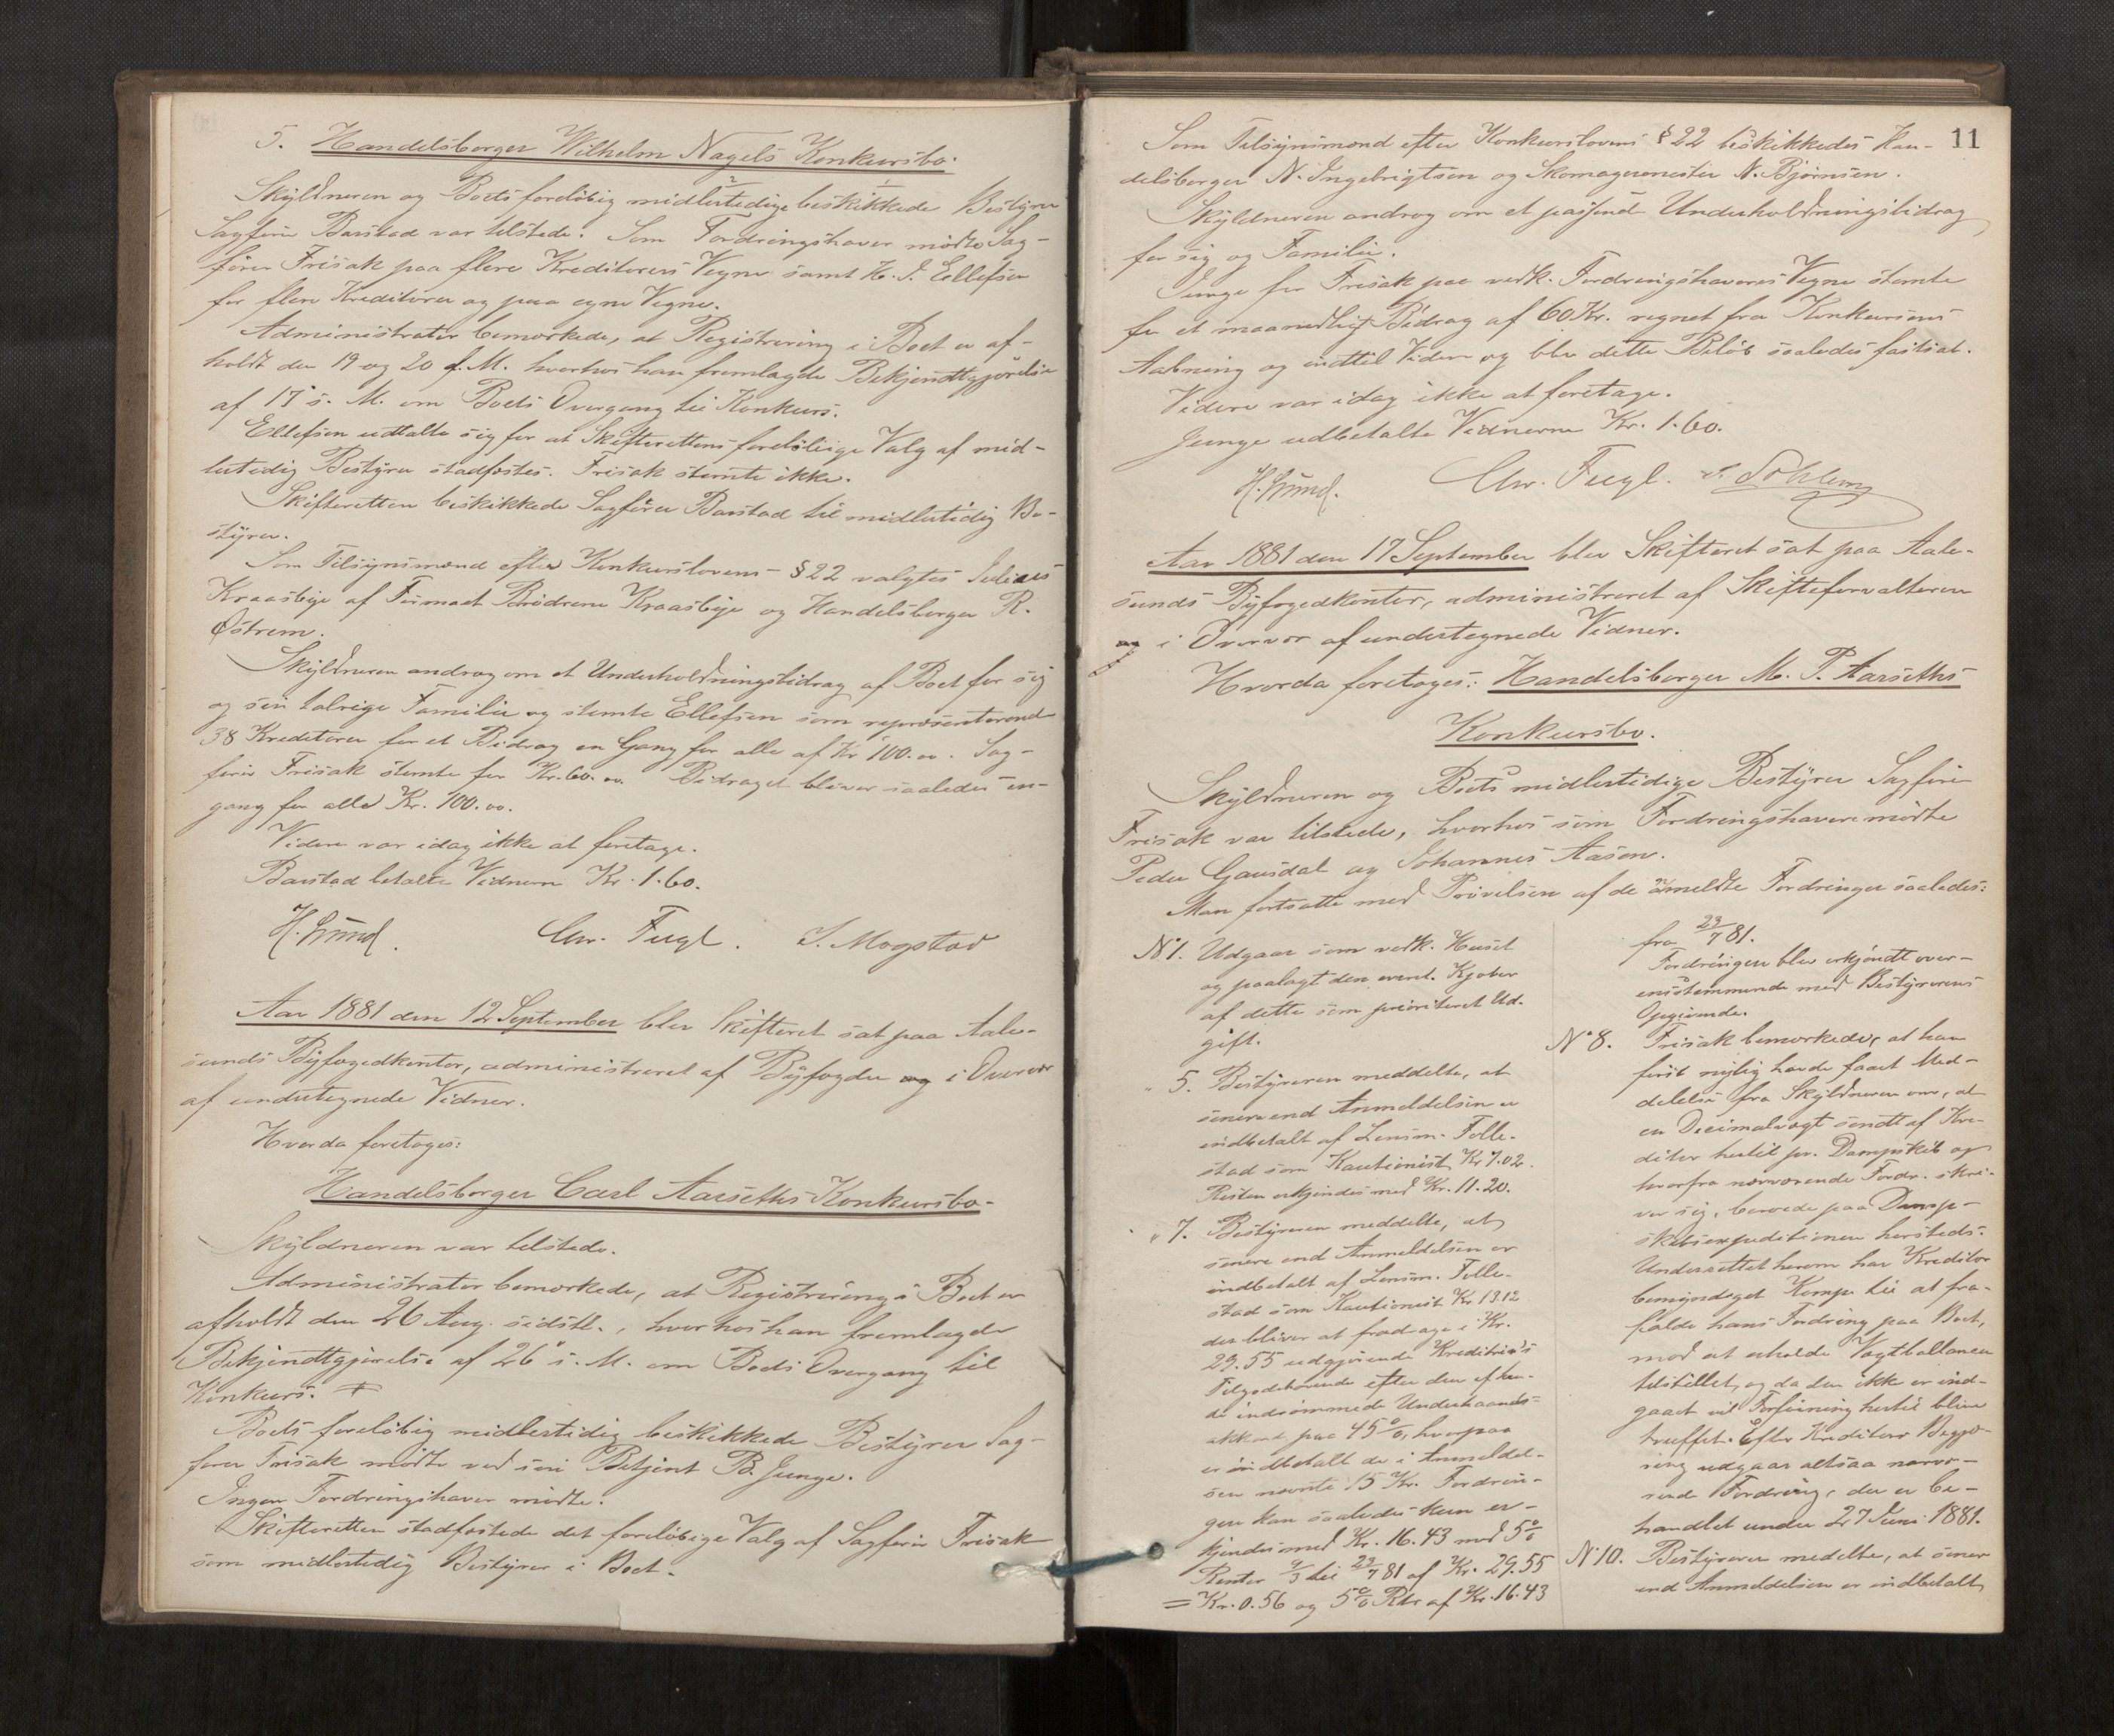 5. Handelsborger Wilhelm Nagels Konkursbo.
Skyldneren og Boets foreløbig midlertidige beskikkede Bestyrer
Sagfører Barstad var tilstede. Som Fordringshaver mødte Sag-
fører Frisak paa flere Kreditorers Vegne samt K. J. Ellefsen
for flere Kreditorer og paa egne Vegne.
Administrator bemærkede, at Registrering i Boet er af-
holdt den 19 og 20 f. M. hvorhos han fremlagde Bekjendtgjørelse
af 17 s. M. om Boets Overgang til Konkurs.
Ellefsen udtalte sig for at Skifterettens foreløbige Valg af mid-
lertidig Bestyrer stadfæstes. Frisak stemte ikke.
Skifteretten beskikkede Sagfører Barstad til midlertidig Be-
styrer.
Som Tilsynsmænd efter Konkurslovens § 22 valgtes Julius
Kraasbye af Firmaet Brødrene Kraasbye og Handelsborger R.
Østrem.
Skyldneren androg om et Underholdningsbidrag af Boet for sig
og sin talrige Familie og stemte Ellefsen som repræsenterende
38 Kreditorer for et Bidrag en Gang for alle af Kr 100.00. Sag-
fører Frisak stemte for Kr. 60.00. Bidraget bliver saaledes en-
gang for alle Kr. 100.00.
Videre var idag ikke at foretage.
Barstad betalte Vidnerne Kr. 1.60.
Chr. Fugl. S. Mogstad
Aar 1881 den 12 September blev Skifteret sat paa Aale-
sunds Byfogedkontor, administreret af Byfogden og i Overvær
af undertegnede Vidner.
Hvorda foretoges:
Handelsborger Carl Aarseths Konkursbo.
Skyldneren var tilstede.
Administrator bemærkede, at Registrering i Boet er
afholdt den 26 Aug. sidstl., hvorhos han fremlagde
Bekjendtgjørelse af 26 s. M. om Boets Overgang til
Konkurs.
Boets foreløbig midlertidig beskikkede Bestyrer Sag-
fører Frisak mødte ved sin Betjent B. Junge.
Ingen Fordringshaver mødte.
Skifteretten stadfæstede det foreløbige Valg af Sagfører Frisak
som midlertidig Bestyrer i Boet.
11
Som Tilsynsmænd efter Konkurslovens § 22 beskikkedes Han-
delsborger N. Ingebrigtsen og Skomagermester N. Bjørnsen.
Skyldneren androg om et passende Underholdningsbidrag
for sig og Familie.
Junge for Frisak paa vedk. Fordringshaveres Vegne stemte
for et maanedligt Bidrag af 60 Kr. regnet fra Konkursens
Aabning og indtil Videre og blev dette Beløb saaledes fastsat.
Videre var idag ikke at foretage.
Junge udbetalte Vidnerne Kr. 1.60.
Chr. Fugl.
Aar 1881 den 17 September blev Skifteret sat paa Aale-
sunds Byfogedkontor, administreret af Skifteforvalteren
og i Overvær af undertegnede Vidner.
Hvorda foretoges: Handelsborger M. P. Aarseths
Konkursbo.
Skyldneren og Boets midlertidige Bestyrer Sagfører
Frisak var tilstede, hvorhos som Fordringshavere mødte
Peder Gausdal og Johannes Aasen.
Man fortsatte med Prøvelsen af de anmeldte Fordringer saaledes:
No 1. Udgaar som vedk. Huset
og paalagt den event. Kjøber
af dette som prioriteret Ud-
gift.
" 5. Bestyreren meddelte, at
senere end Anmeldelsen er
indbetalt af Lensm. Tolle-
stad som Kautionist Kr 7.02.
Resten erkjendes med Kr. 11.20.
" 7. Bestyreren meddelte, at
senere end Anmeldelsen er
indbetalt af Lensm. Tolle-
stad som Kautionist Kr 13.12
der bliver at fradrage i Kr.
29.55 udgjørende Kreditors
Tilgodehavende efter den af ham
indrømmede Underhaands-
akkord paa 45 %, hvorpaa
er indbetalt de i Anmeldel-
sen nævnte 15 Kr. Fordrin-
gen kan saaledes kun er-
kjendes med Kr. 16.43 med 5 %
Renter til 23/7 81 af Kr. 29.55
= Kr. 0.56 og 5 % Rtr af Kr. 16.43
fra 23/7 81.
Fordringen blev erkjendt over-
ensstemmende med Bestyrerens
Opgivende.
No 8. Frisak bemærkede, at han
først nylig havde faaet Med-
delelse fra Skyldneren om, at
en Decimalvægt sendt af Kre-
ditor hertil pr. Dampskib og
hvorfra nærværende Fordr. skri-
ver sig, beroede paa Damp-
skibsexpeditionen hersteds.
Underrettet herom har Kreditor
bemyndiget Komp. til at fra-
falde hans Fordring paa Boet,
mod at erholde Vægtballancen
tilstillet, og da den ikke er ind-
gaaet vil Forføining hertil blive
truffet. Efter Kreditors Begjæ-
ring udgaar altsaa nærvæ-
rende Fordring, der er be-
handlet under 27 Juni 1881.
No 10. Bestyreren meddelte, at senere
end Anmeldelsen er indbetalt